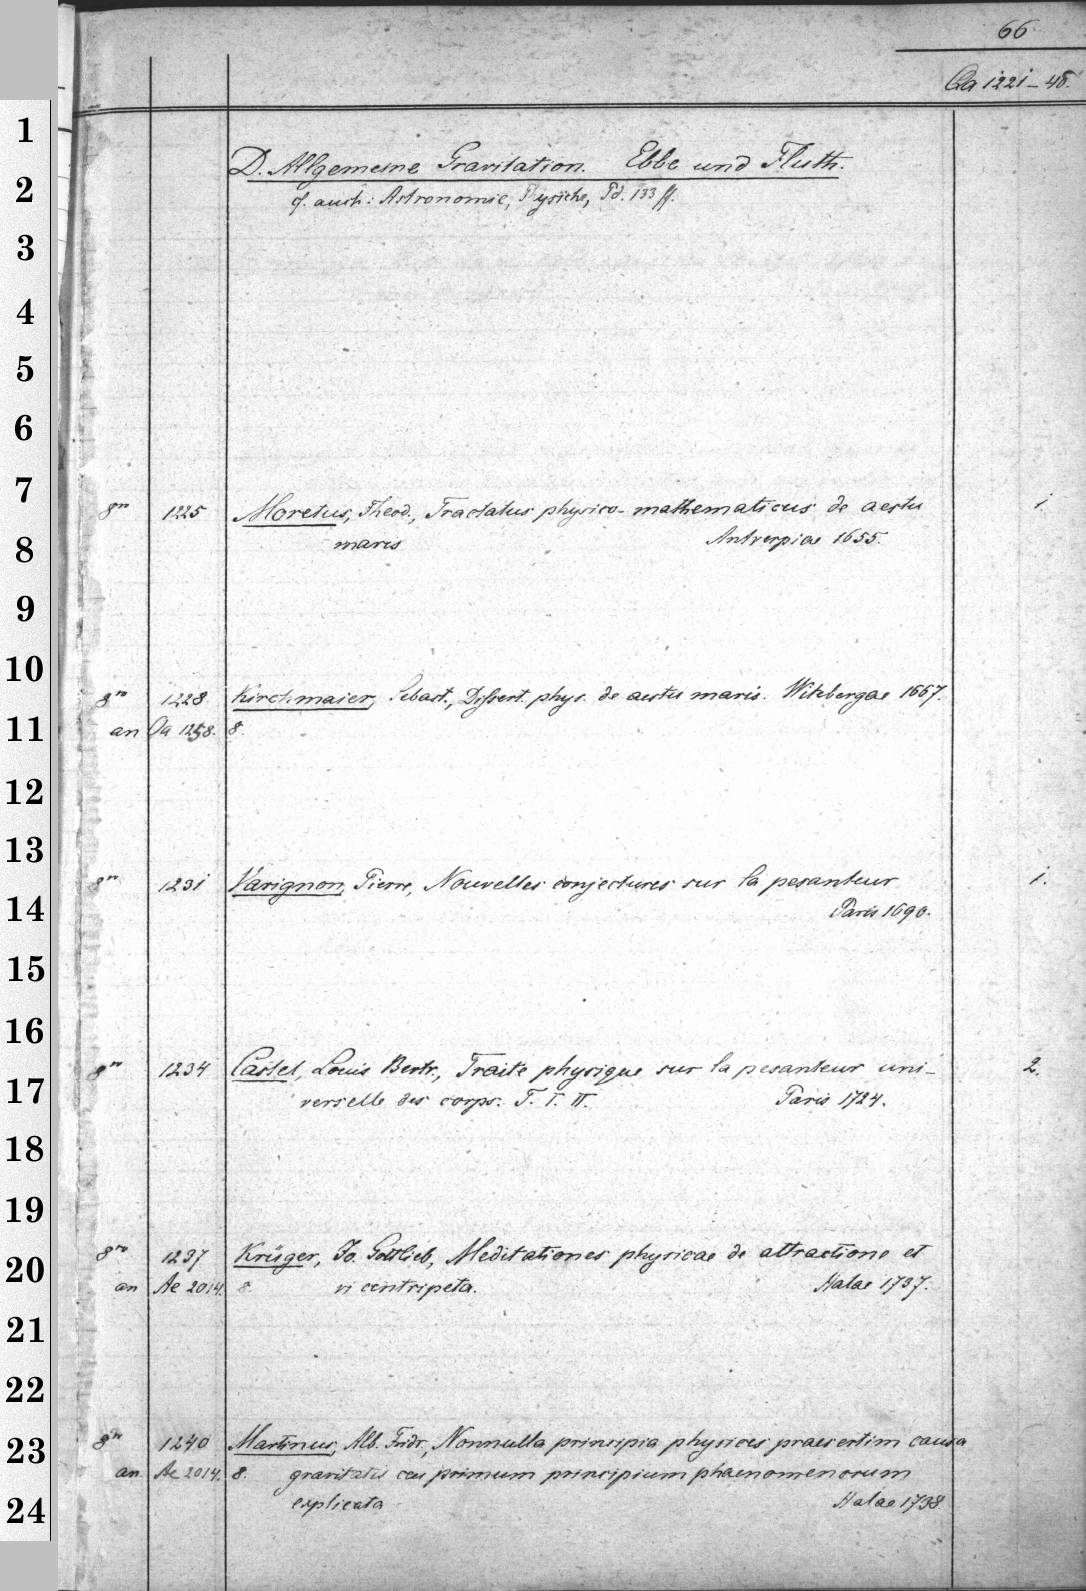 66
Qa 1221-45.
1
D. Allgemeine Gravitation. Ebbe und Fluth.
2
cf. auch: Astronomie, Physiche, Pd. 133 ff.
3
4
5
6
7
8vo 1225 Moretus, Theod., Tractatus physico-mathematicus de aestu 1
8
maris Antverpiae 1655.
9
10
8vo 1228 Kirchmaier, Sebast., Dissert. phys. de aestu maris. Witebergae 1667.
11
an Qa 1258. 8.
12
13
8vo 1231 Varignon, Pierre, Nouvelles conjectures sur la pesanteur 1.
14
Paris 1690.
15
16
8vo 1234 Castel, Louis Bertr., Traite physique sur la pesanteur uni- 2.
17
verselle des corps. T. I. II. Paris 1724.
18
19
8vo 1237 Krüger, Jo. Gottlieb, Meditationes physicae de attractione et
20
an Ae 2014. 8. vi centripeta. Halae 1737.
21
22
8vo 1240 Martinus, Alb. Fridr., Nonnulla principia physices praesertim causa
23
an Ae 2014. 8. gravitatis ceu primum principium phaenomenorum
24
explicata Halae 1738